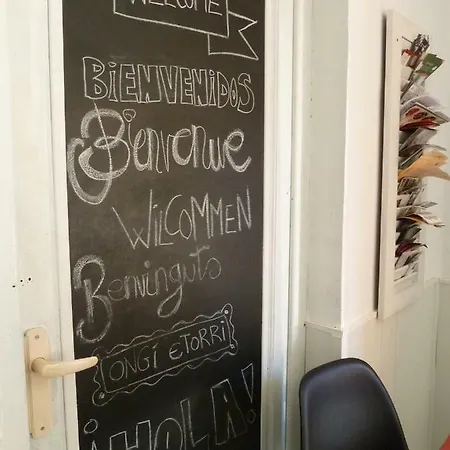 WELCOME
BIENVENIDOS
Bienvenue
WILCOMMEN
Benvinguts
ONGI ETORRI
¡HOLA!